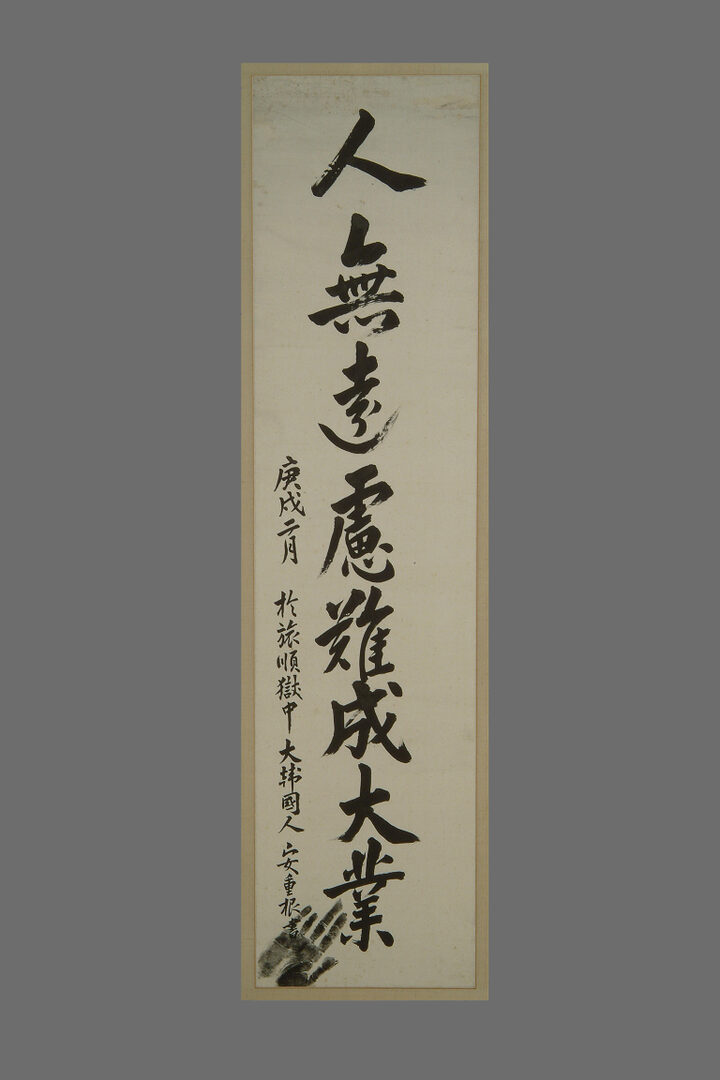 人無遠慮難成大業
庚戌二月 於旅順獄中 大韓國人 安重根書